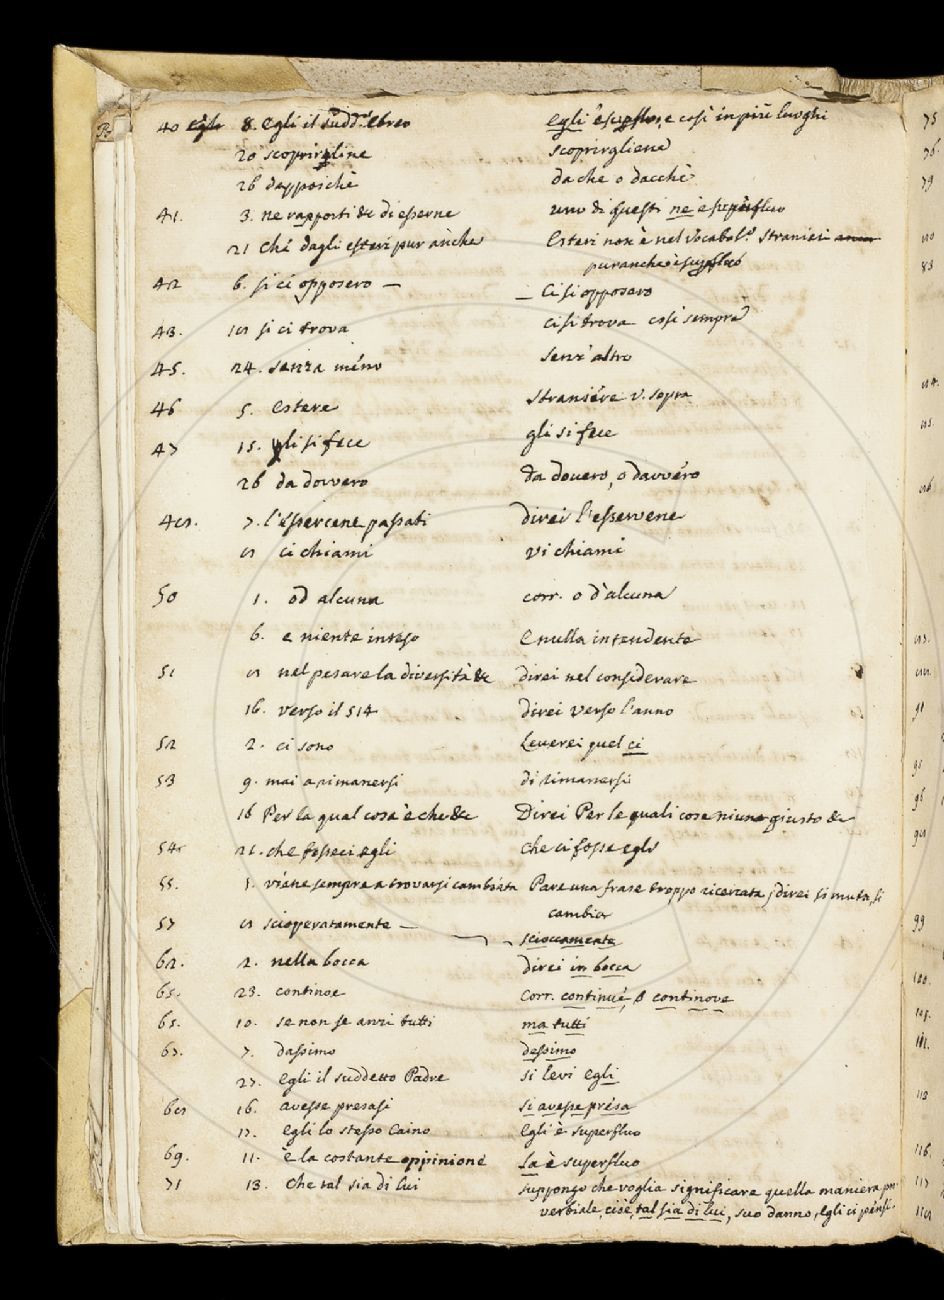 40 egli 8. Egli il sudd.º Ebreo Egli è supfluo, e così in più luoghi
20 scoprirgline scoprirgliene
26 dappoichè da che o dacchè
41. 3. ne rapporti &c di esserne uno di questi ne è superfluo
21 Ché dagli esteri pur anche Esteri non è nel Vocabol.º Stranieri
puranche è supfluo
42 6. si ci opposero — — Ci si opposero
43. 18 si ci trova ci si trova così sempre
45. 24. senza méno senz'altro
46 5. Estere straniére v. sopra
47 15. gli si fece gli si fece
26 da dovvero da dovero, o davvéro
48. 7. l'essercene passati direi l'esservene
8 ci chiami vi chiami
50 1. od alcuna corr. o d'alcuna
6. e niente inteso E nulla intendente
51 8 nel pesare la diversità &c direi nel considerare
16. verso il 514 direi verso l'anno
52 2. ci sono Leverei quel ci
53 9. mai a rimanersi di rimanersi
16 Per la qual cosa è che &c Direi Per le quali cose niuno giusto &c
54 21. che fosseci egli che ci fosse egli
55. 5. viene sempre a trovarsi cambiata Pare una frase troppo ricercata, direi si muta, si
cambia
57 8 scioperatamente — scioccamente
62. 2. nella bocca direi in bocca
65. 23. continoe corr. continué, o continove
65. 10. se non se anzi tutti ma tutti
67. 7. dassimo dessimo
27. Egli il suddetto Padre si levi egli
68 16. avesse presasi si avesse présa
17. Egli lo stesso Caino Egli è superfluo
69. 11. è la costante oppinione La è superfluo
71 13. Che tal sia di lui suppongo che voglia significare quella maniera pro-
verbiale, cioè, tal sia di lui, suo danno, Egli ci pensi.
75
76.
79
83
91
99
100.
112
116.
117
118